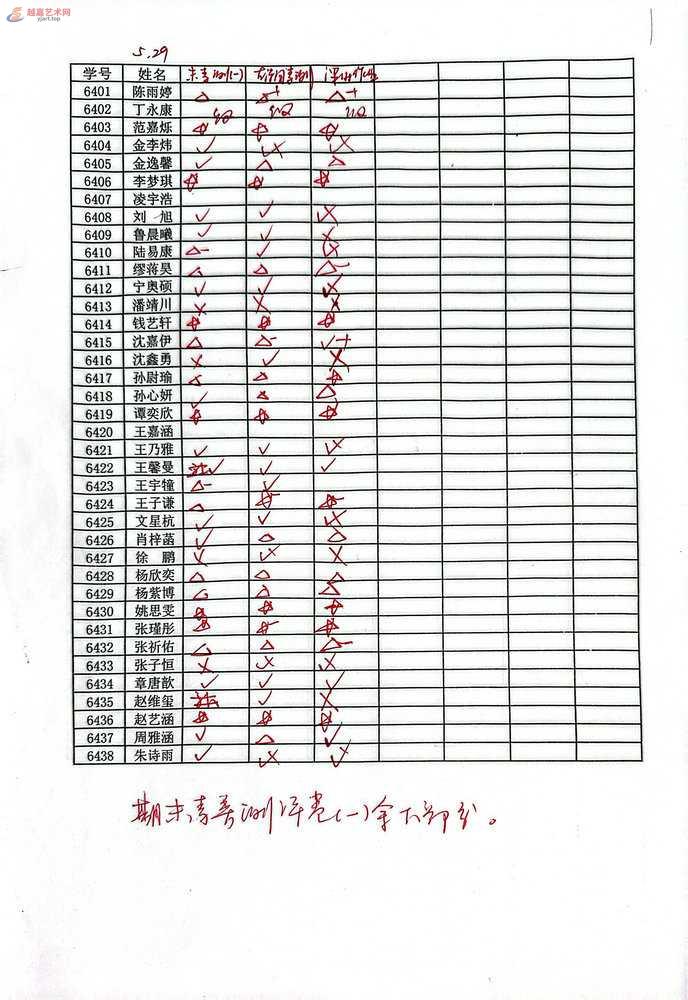 越嘉艺术网
yjart.top
5.29
学号 姓名
6401 陈雨婷 △ △+ △+
6402 丁永康
6403 范嘉烁 ☆ ☆ ☆
6404 金李炜 ✓
6405 金逸馨 ✓ △ △
6406 李梦琪 ☆ ☆ ☆
6407 凌宇浩
6408 刘 旭 ✓ ✓
6409 鲁晨曦 ✓ ✓
6410 陆易康 △- ✓
6411 缪蒋昊 △ △ △-
6412 宁奥硕 ✓ ✓
6413 潘靖川 × × ×
6414 钱艺轩 ☆ ☆ ☆
6415 沈嘉伊 △ △- ✓+
6416 沈鑫勇 × ✓ ×
6417 孙尉瑜 △ △ ☆
6418 孙心妍 ✓ △ △
6419 谭奕欣 ☆ ☆ ☆
6420 王嘉涵
6421 王乃雅 ✓ ✓
6422 王馨曼 ✓ ✓ ✓
6423 王宇犝 △- ✓
6424 王子谦 △ ☆- ☆-
6425 文星杭 ✓ ✓
6426 肖梓菡 ✓ △ △
6427 徐 鹏 × ×
6428 杨欣奕 △ △ △
6429 杨紫博 △ △ △
6430 姚思雯 ☆ ☆ ☆
6431 张瑾彤 ☆- ☆
6432 张祈佑 △ △ △-
6433 张子恒 ×
6434 章唐歆 ✓ ✓ ✓
6435 赵维玺 ✓ ×
6436 赵艺涵 ☆ ☆ ☆
6437 周雅涵 ✓ △ ✓
6438 朱诗雨 ✓
期末素养测评卷(一)余下部分。